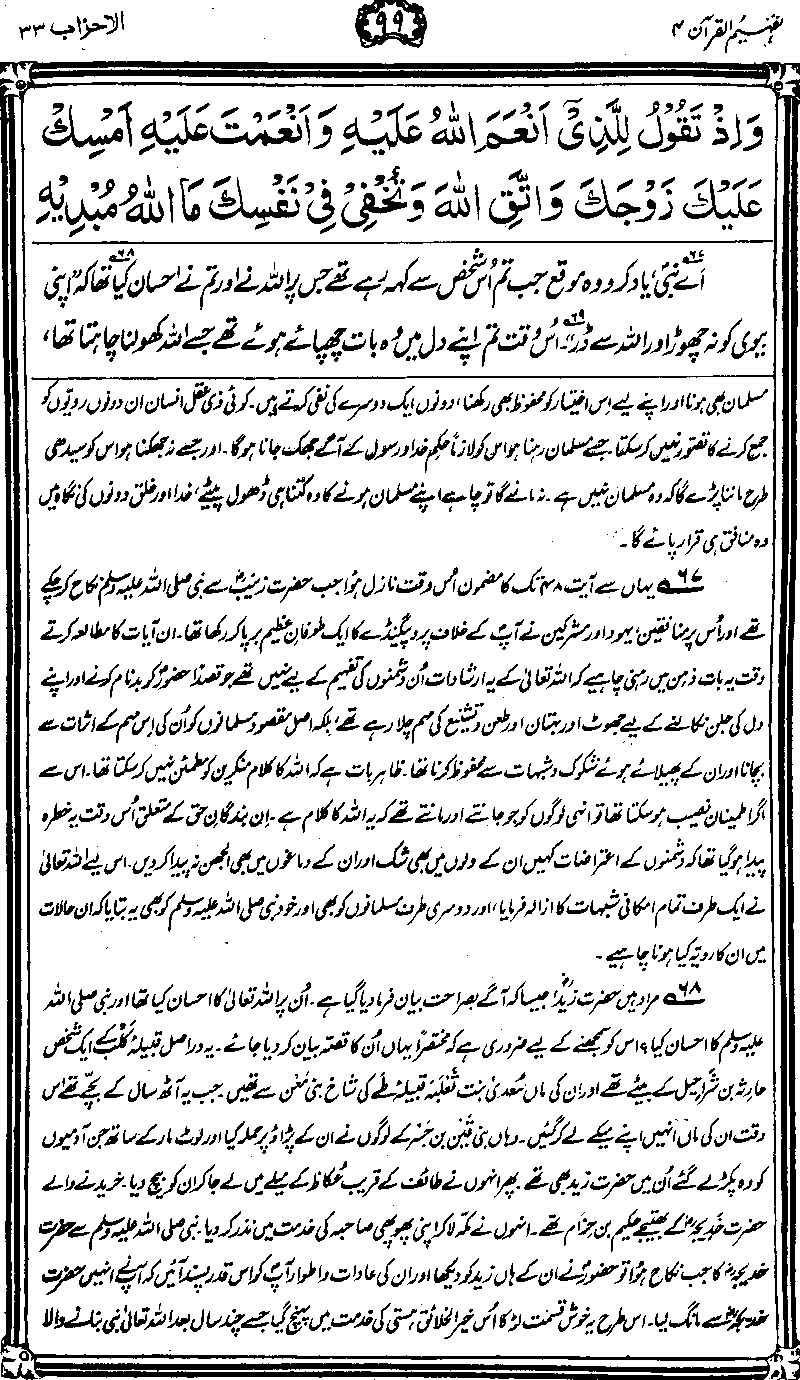 تفہیم القرآن ۴
۹۹
الاحزاب ۳۳
وَاِذْ تَقُوْلُ لِلَّذِیْٓ اَنْعَمَ اللّٰهُ عَلَیْهِ وَاَنْعَمْتَ عَلَیْهِ اَمْسِكْ
عَلَیْكَ زَوْجَكَ وَاتَّقِ اللّٰهَ وَتُخْفِیْ فِیْ نَفْسِكَ مَا اللّٰهُ مُبْدِیْهِ
اَے نبیؐ، یاد کرو وہ موقع جب تم اُس شخص سے کہہ رہے تھے جس پر اللہ نے اور تم نے احسان کیا تھا کہ ”اپنی
بیوی کو نہ چھوڑ اور اللہ سے ڈر“۔ اُس وقت تم اپنے دل میں وہ بات چھپائے ہوئے تھے جسے اللہ کھولنا چاہتا تھا،
مسلمان بھی ہونا اور اپنے لیے اِس اختیار کو محفوظ بھی رکھنا، دونوں ایک دوسرے کی نفی کرتے ہیں۔ کوئی ذی عقل انسان ان دونوں رویّوں کو
جمع کرنے کا تصّور نہیں کر سکتا۔ جسے مسلمان رہنا ہو اس کو لازماً حکمِ خدا و رسول کے آگے جھک جانا ہو گا۔ اور جسے نہ جھکنا ہو اس کو سیدھی
طرح ماننا پڑے گا کہ وہ مسلمان نہیں ہے۔ نہ مانے گا تو چاہے اپنے مسلمان ہونے کا وہ کتنا ہی ڈھول پیٹے، خدا اور خلق دونوں کی نگاہ میں
وہ منافق ہی قرار پائے گا۔
۶۷ یہاں سے آیت ۴۸ تک کا مضمون اُس وقت نازل ہوا جب حضرت زینبؓ سے نبی صلی اللہ علیہ وسلم نکاح کر چکے
تھے اور اُس پر منافقین، یہود اور مشرکین نے آپؐ کے خلاف پروپیگنڈے کا ایک طوفانِ عظیم برپا کر رکھا تھا۔ ان آیات کا مطالعہ کرتے
وقت یہ بات ذہن میں رہنی چاہیے کہ اللہ تعالیٰ کے یہ ارشادات اُن دشمنوں کی تفہیم کے لیے نہیں تھے جو قصداً حضورؐ کو بدنام کرنے اور اپنے
دل کی جلن نکالنے کے لیے جھوٹ اور بہتان اور طعن و تشنیع کی مہم چلا رہے تھے، بلکہ اصل مقصود مسلمانوں کو اُن کی اِس مہم کے اثرات سے
بچانا اور ان کے پھیلائے ہوئے شکوک و شبہات سے محفوظ کرنا تھا۔ ظاہر بات ہے کہ اللہ کا کلام منکرین کو مطمئن نہیں کر سکتا تھا۔ اس سے
اگر اطمینان نصیب ہو سکتا تھا تو انہی لوگوں کو جو جانتے اور مانتے تھے کہ یہ اللہ کا کلام ہے۔ اِن بندگانِ حق کے متعلق اُس وقت یہ خطرہ
پیدا ہو گیا تھا کہ دشمنوں کے اعتراضات کہیں ان کے دلوں میں بھی شک اور ان کے دماغوں میں بھی الجھن نہ پیدا کر دیں۔ اس لیے اللہ تعالیٰ
نے ایک طرف تمام امکانی شبہات کا ازالہ فرمایا، اور دوسری طرف مسلمانوں کو بھی اور خود نبی صلی اللہ علیہ وسلم کو بھی یہ بتایا کہ ان حالات
میں ان کا رویّہ کیا ہونا چاہیے۔
۶۸ مراد ہیں حضرت زیدؓ، جیسا کہ آگے بصراحت بیان فرما دیا گیا ہے۔ اُن پر اللہ تعالیٰ کا احسان کیا تھا اور نبی صلی اللہ
علیہ وسلم کا احسان کیا؟ اس کو سمجھنے کے لیے ضروری ہے کہ مختصراً یہاں اُن کا قصہ بیان کر دیا جائے۔ یہ دراصل قبیلۂ کَلْب کے ایک شخص
حارثہ بن شَراحیل کے بیٹے تھے اور ان کی ماں سُعدیٰ بنت ثَعْلَبَہ قبیلۂ طَے کی شاخ بنی مَعْن سے تھیں۔ جب یہ آٹھ سال کے بچے تھے اس
وقت ان کی ماں انہیں اپنے میکے لے کر گئیں۔ وہاں بنی قَیْن بن جَسْر کے لوگوں نے ان کے پڑاؤ پر حملہ کیا اور لوٹ مار کے ساتھ جن آدمیوں
کو وہ پکڑ لے گئے اُن میں حضرت زید بھی تھے۔ پھر انہوں نے طائف کے قریب عُکاظ کے میلے میں لے جا کر ان کو بیچ دیا۔ خریدنے والے
حضرت خدیجہؓ کے بھتیجے حکیم بن حِزام تھے۔ انہوں نے مکّہ لا کر اپنی پھوپھی صاحبہ کی خدمت میں نذر کر دیا۔ نبی صلی اللہ علیہ وسلم سے حضرت
خدیجہؓ کا جب نکاح ہوا تو حضورؐ نے ان کے ہاں زید کو دیکھا اور ان کی عادات و اطوار آپؐ کو اس قدر پسند آئیں کہ آپؐ نے انہیں حضرت
خدیجہؓ سے مانگ لیا۔ اس طرح یہ خوش قسمت لڑکا اُس خیر الخلائق ہستی کی خدمت میں پہنچ گیا جسے چند سال بعد اللہ تعالیٰ نبی بنانے والا